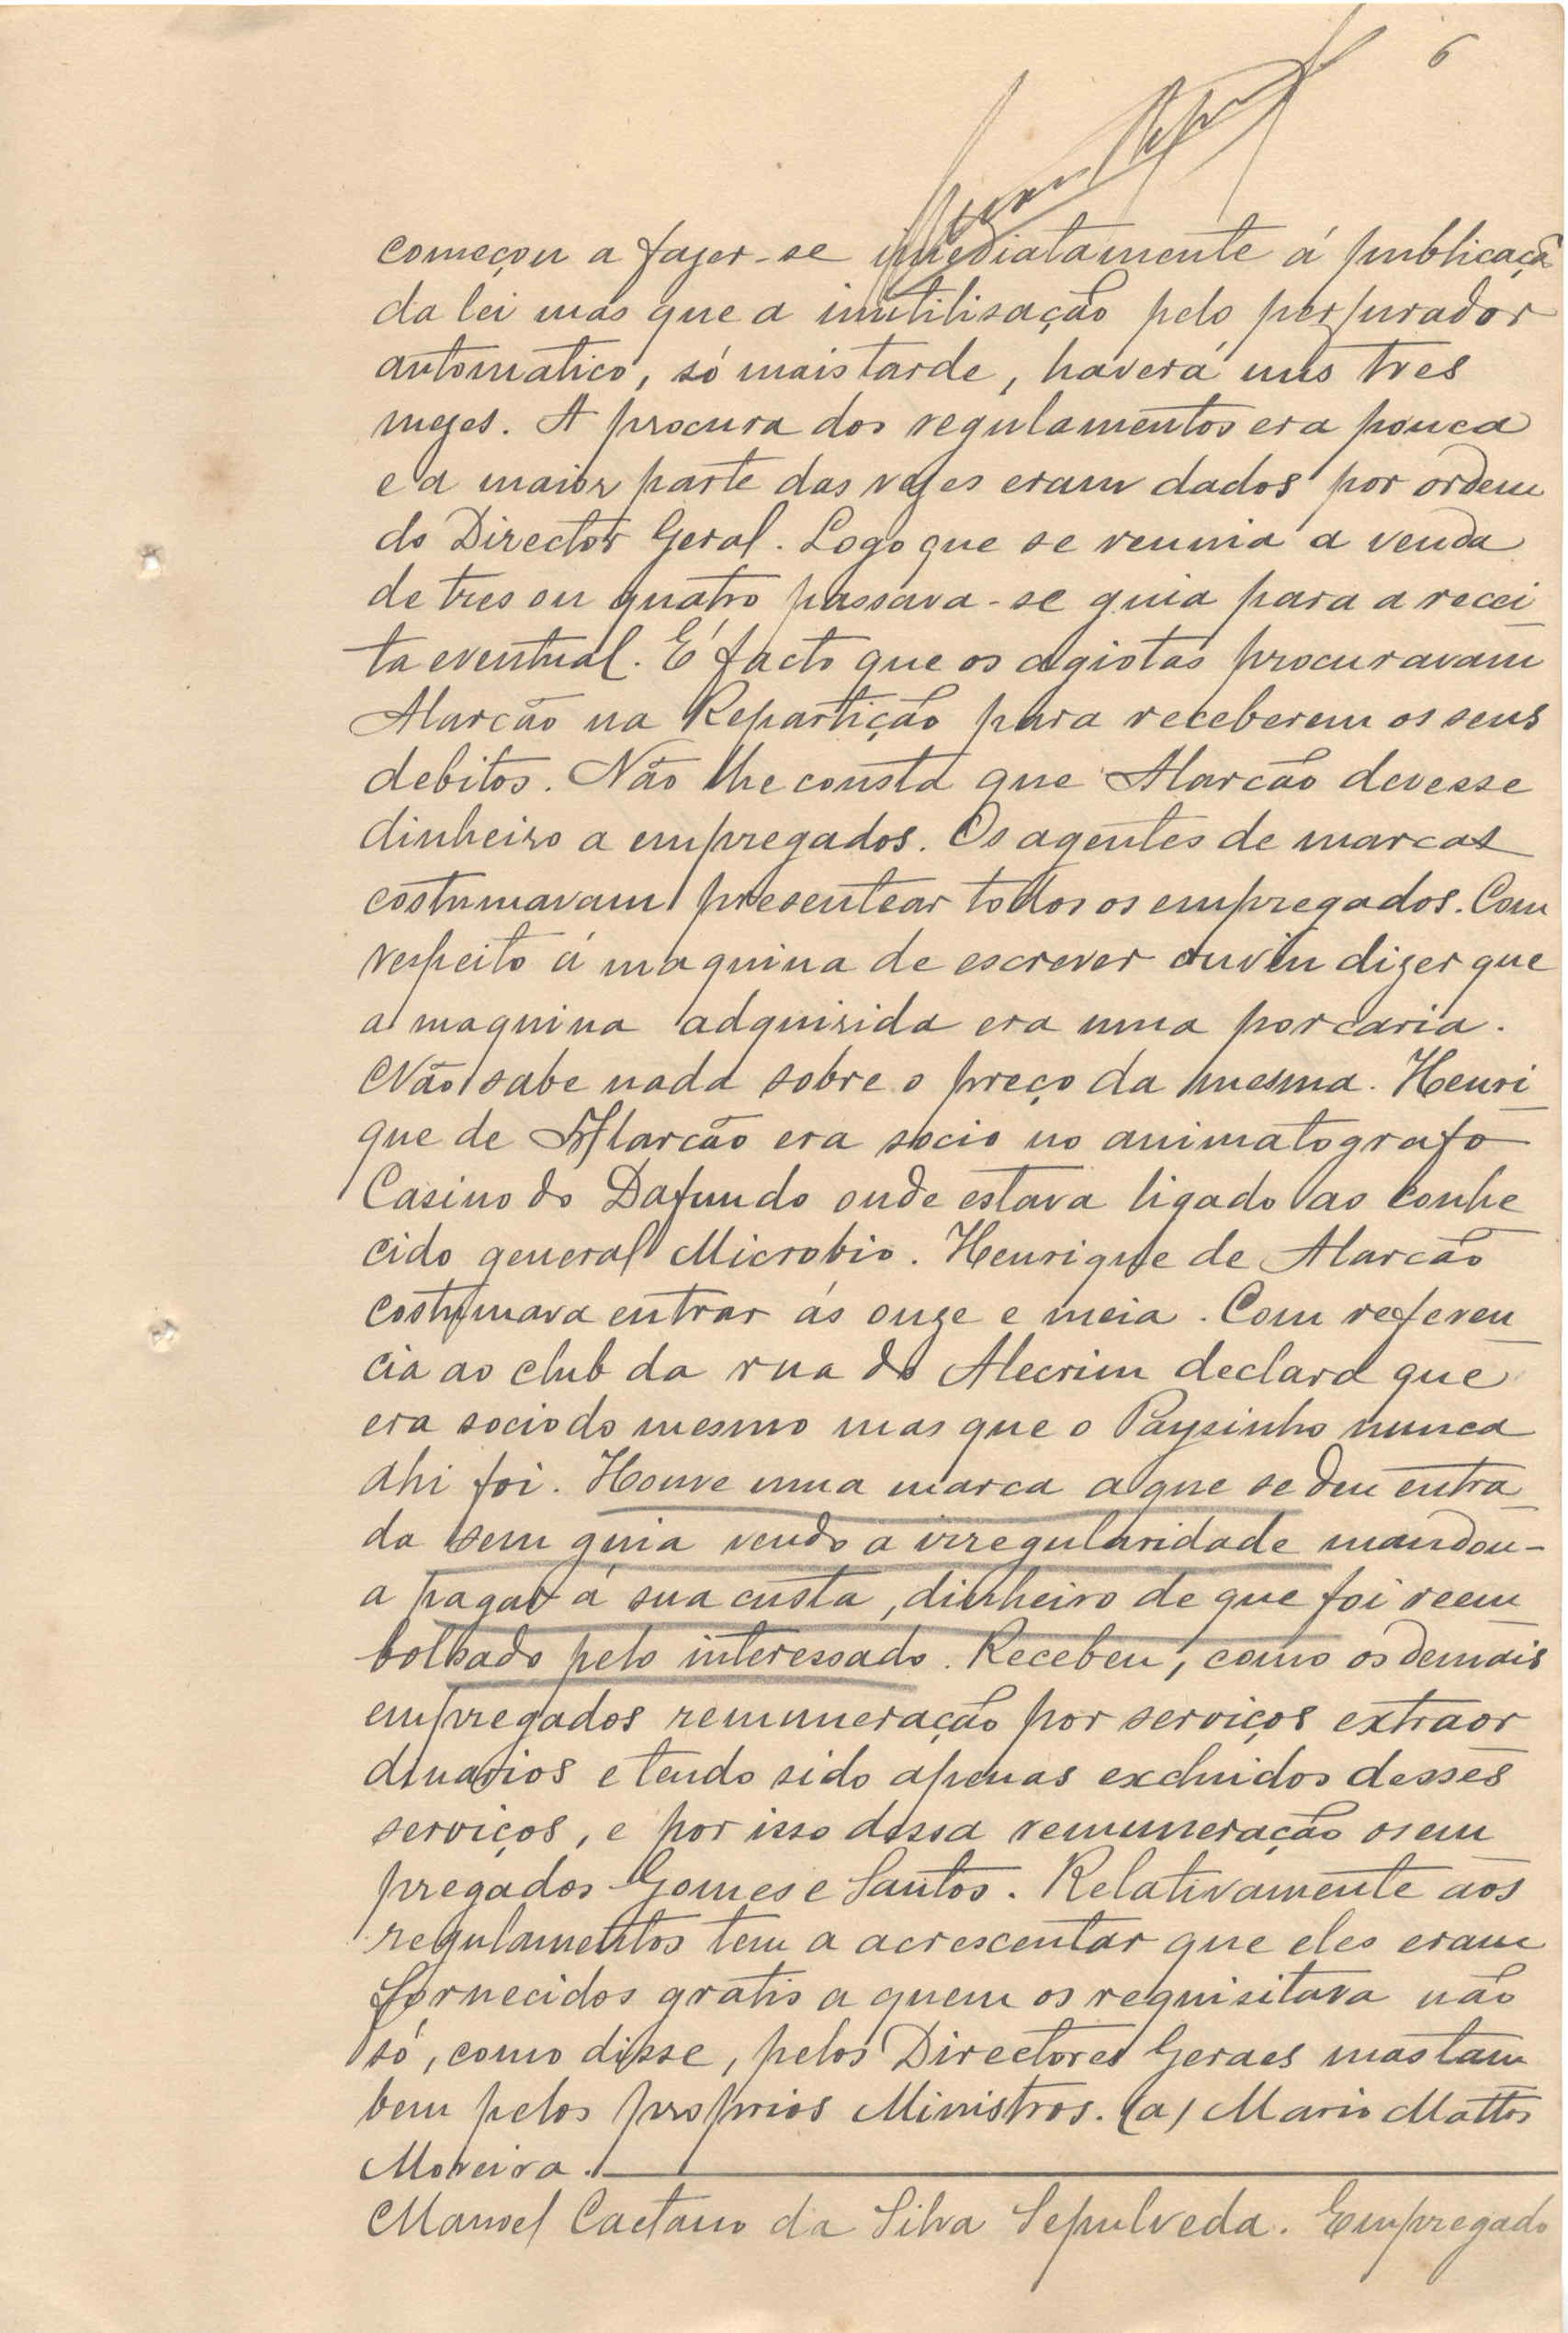 6
começou a fazer-se immediatamente á publicaçã
da lei mas que a inutilisação pelo perfurador
automatico, só mais tarde, haverá uns tres
mezes. A procura dos regulamentos era pouca
e a maior parte das vezes eram dados por ordem
do Director Geral. Logo que se reunia a venda
de tres ou quatro passava-se guia para a recei
ta eventual. É facto que os agiotas procuravam
Alarcão na Repartição para receberem os seus
debitos. Não lhe consta que Alarcão devesse
dinheiro a empregados. Os agentes de marcas
costumavam presentear todos os empregados. Com
respeito á maquina de escrever ouviu dizer que
a maquina adquirida era uma porcaria.
Não sabe nada sobre o preço da mesma. Henri
que de Alarcão era socio no animatografo
Casino do Dafundo onde estava ligado ao conhe
cido general Microbio. Henrique de Alarcão
costumava entrar ás onze e meia. Com referen
cia ao club da rua do Alecrim declara que
era socio do mesmo mas que o Paysinho nunca
ahi foi. Houve uma marca a que se deu entra
da sem guia vendo a irregularidade mandou-
a pagar á sua custa, dinheiro de que foi reem
bolsado pelo interessado. Recebeu, como os demais
empregados remuneração por serviços extraor
dinarios e tendo sido apenas excluidos desses
serviços, e por isso dessa remuneração os em
pregados Gomes e Santos. Relativamente aos
regulamentos tem a acrescentar que eles eram
fornecidos gratis a quem os requisitava não
só, como disse, pelos Directores Geraes mas tam
bem pelos proprios Ministros. (a) Mario Mattos
Moreira.
Manoel Caetano da Silva Sepulveda. Empregado